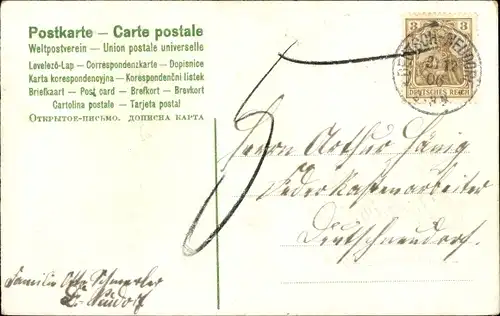 Postkarte — Carte postale
Weltpostverein — Union postale universelle
Levelező-Lap — Correspondenzkarte — Dopisnice
Karta korespondencyjna — Korespondenční lístek
Briefkaart — Post card — Brefkort — Brevkort
Cartolina postale — Tarjeta postal
Открытое-письмо. дописна карта
3 3
DEUTSCHES REICH
12
06
5
Herrn Arthur Hänig
Federkastenarbeiter
Deutschneudorf.
Familie Otto Schmerler
D.-Neudorf